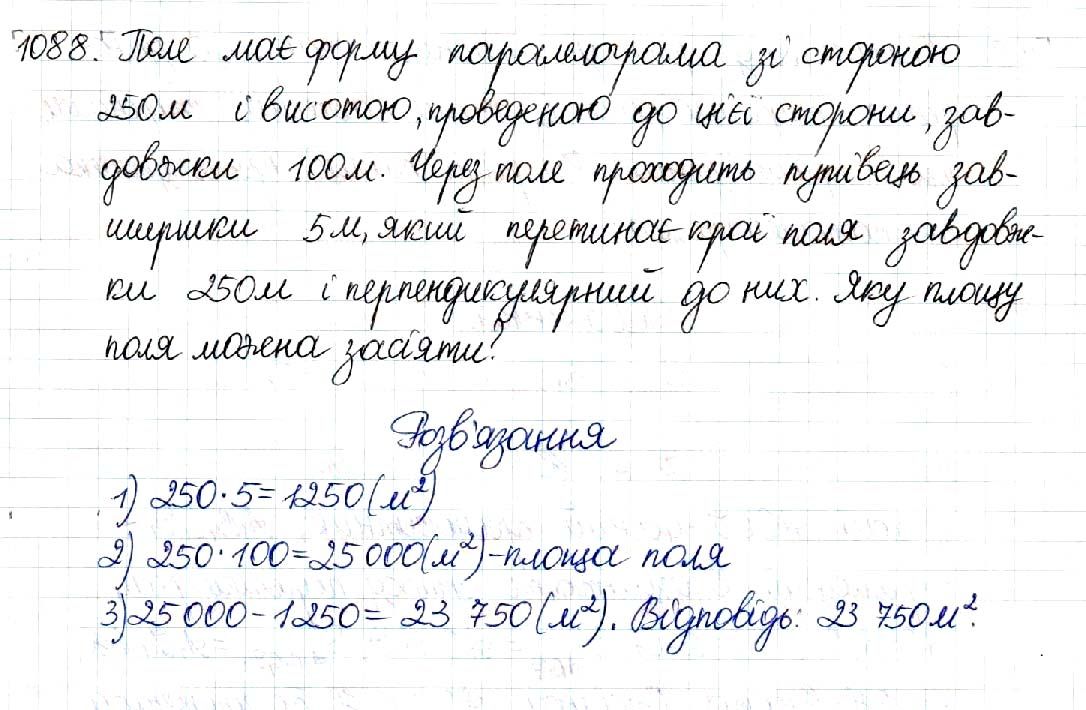 1088. Поле має форму паралелограма зі стороною
250м і висотою, проведеною до цієї сторони, зав-
довжки 100м. Через поле проходить путівець зав-
ширшки 5м, який перетинає краї поля завдовж-
ки 250м і перпендикулярний до них. Яку площу
поля можна засіяти?
Розв'язання
1) 250·5=1250(м²)
2) 250·100=25000(м²)-площа поля
3)25000-1250= 23 750(м²). Відповідь: 23 750м².